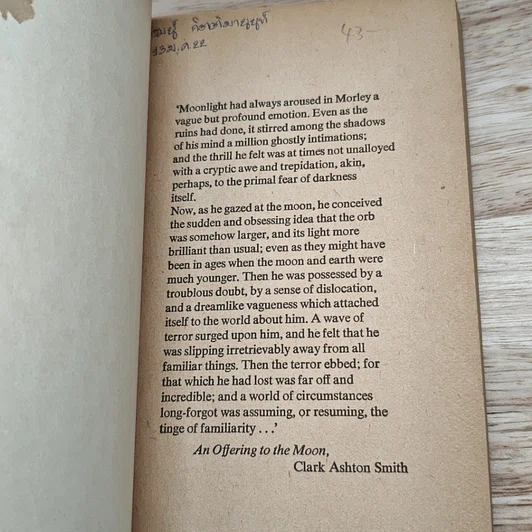 43-
'Moonlight had always aroused in Morley a
vague but profound emotion. Even as the
ruins had done, it stirred among the shadows
of his mind a million ghostly intimations;
and the thrill he felt was at times not unalloyed
with a cryptic awe and trepidation, akin,
perhaps, to the primal fear of darkness
itself.
Now, as he gazed at the moon, he conceived
the sudden and obsessing idea that the orb
was somehow larger, and its light more
brilliant than usual; even as they might have
been in ages when the moon and earth were
much younger. Then he was possessed by a
troublous doubt, by a sense of dislocation,
and a dreamlike vagueness which attached
itself to the world about him. A wave of
terror surged upon him, and he felt that he
was slipping irretrievably away from all
familiar things. Then the terror ebbed; for
that which he had lost was far off and
incredible; and a world of circumstances
long-forgot was assuming, or resuming, the
tinge of familiarity . . .'
An Offering to the Moon,
Clark Ashton Smith